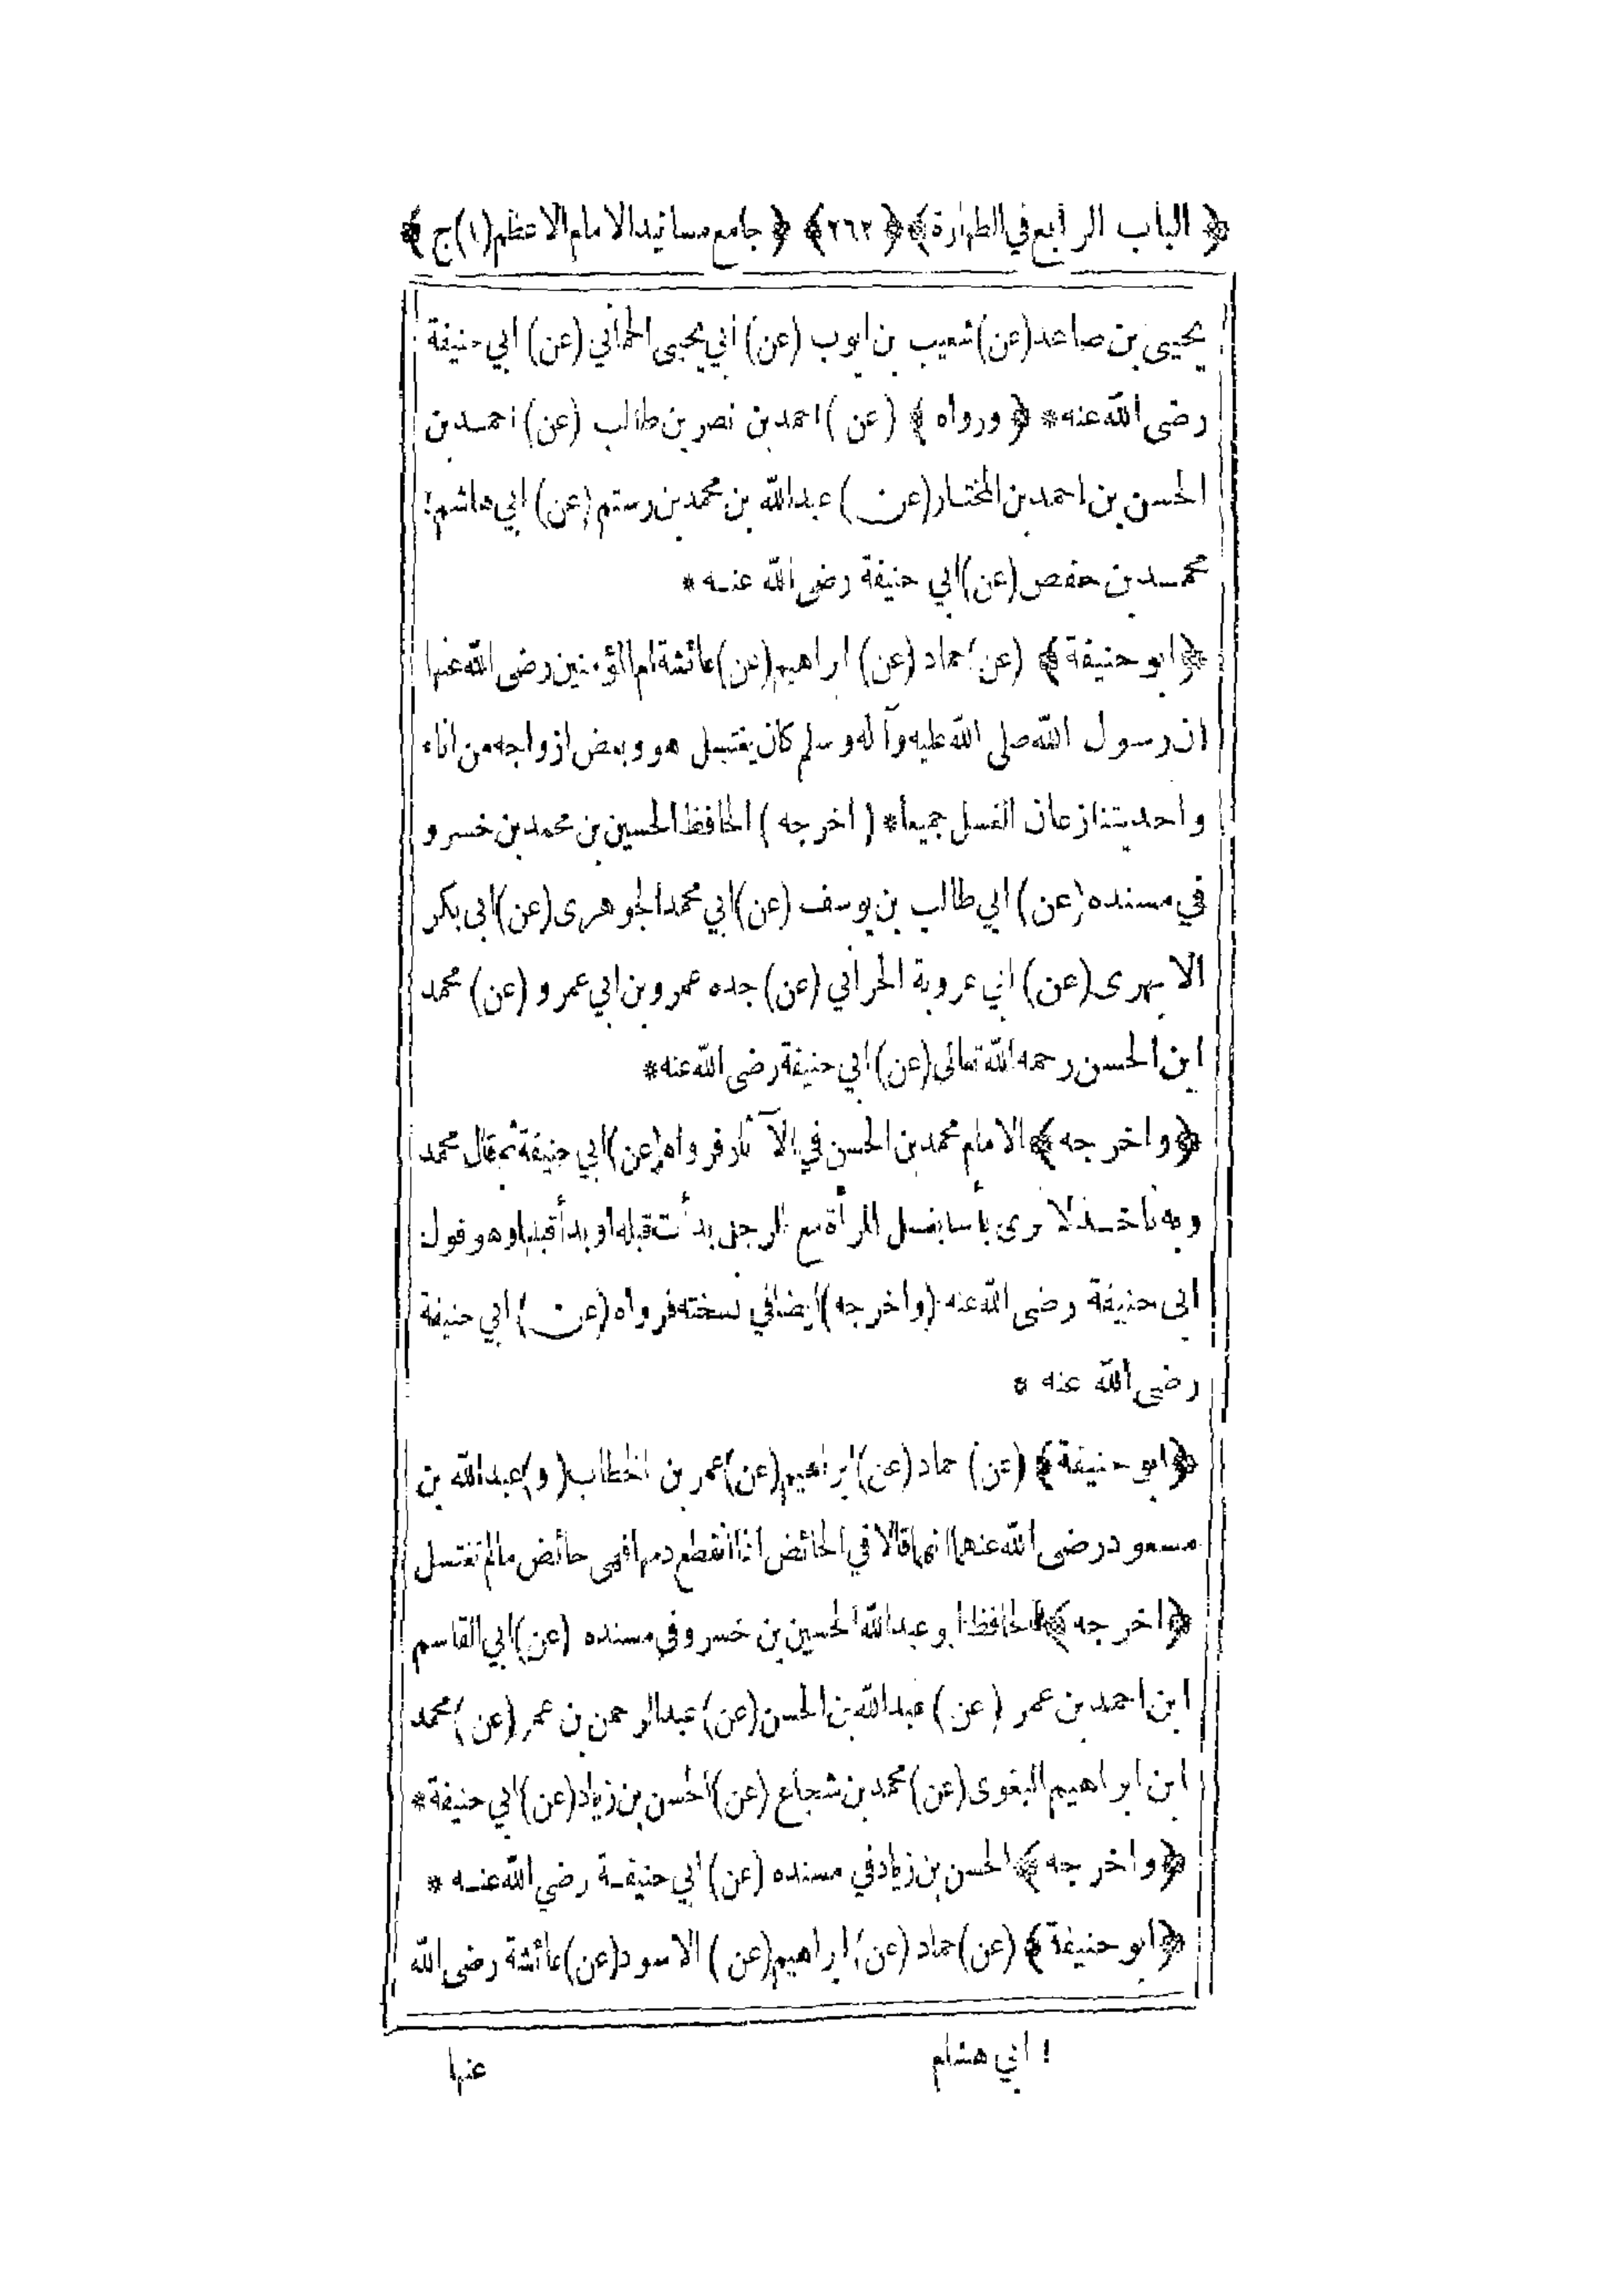 ﴿ الباب الرابع في الطهارة ﴾ ﴿ ٢٦٢ ﴾ ﴿ جامع مسانيد الامام الاعظم (١) ج ﴾
يحيى بن صاعد (عن) شعيب بن ايوب (عن) ابي يحيى الحماني (عن) ابي حنيفة
رضى الله عنه * ﴿ ورواه ﴾ (عن) احمد بن نصر بن طالب (عن) احمد بن
الحسن بن احمد بن المختار (عن) عبد الله بن محمد بن رستم (عن) ابي هاشم !
محمد بن حفص (عن) ابي حنيفة رضى الله عنه *
﴿ ابو حنيفة ﴾ (عن) حماد (عن) ابراهيم (عن) عائشة ام المؤمنين رضى الله عنها
ان رسول الله صلى الله عليه وآله وسلم كان يغتسل هو وبعض ازواجه من اناء
واحد يتنازعان الغسل جميعا * (اخرجه) الحافظ الحسين بن محمد بن خسرو
في مسنده (عن) ابي طالب بن يوسف (عن) ابي محمد الجوهرى (عن) ابى بكر
الابهرى (عن) ابي عروبة الحراني (عن) جده عمرو بن ابي عمرو (عن) محمد
ابن الحسن رحمه الله تعالى (عن) ابي حنيفة رضى الله عنه *
﴿ واخرجه ﴾ الامام محمد بن الحسن في الآثار فرواه (عن) ابي حنيفة ثم قال محمد
وبه ناخذ لا نرى بأسا بغسل المرأة مع الرجل بدأت قبله او بدأ قبلها وهو قول
ابى حنيفة رضى الله عنه (واخرجه) ايضا في نسخته فرواه (عن) ابي حنيفة
رضى الله عنه *
﴿ ابو حنيفة ﴾ (عن) حماد (عن) ابراهيم (عن) عمر بن الخطاب (و) عبد الله بن
مسعود رضى الله عنهما انهما قالا في الحائض اذا انقطع دمها فهى حائض ما لم تغتسل
﴿ اخرجه ﴾ الحافظ ابو عبد الله الحسين بن خسرو في مسنده (عن) ابي القاسم
ابن احمد بن عمر (عن) عبد الله بن الحسن (عن) عبد الرحمن بن عمر (عن) محمد
ابن ابراهيم البغوى (عن) محمد بن شجاع (عن) الحسن بن زياد (عن) ابي حنيفة *
﴿ واخرجه ﴾ الحسن بن زياد في مسنده (عن) ابي حنيفة رضى الله عنه *
﴿ ابو حنيفة ﴾ (عن) حماد (عن) ابراهيم (عن) الاسود (عن) عائشة رضى الله
! ابي هشام
عنها